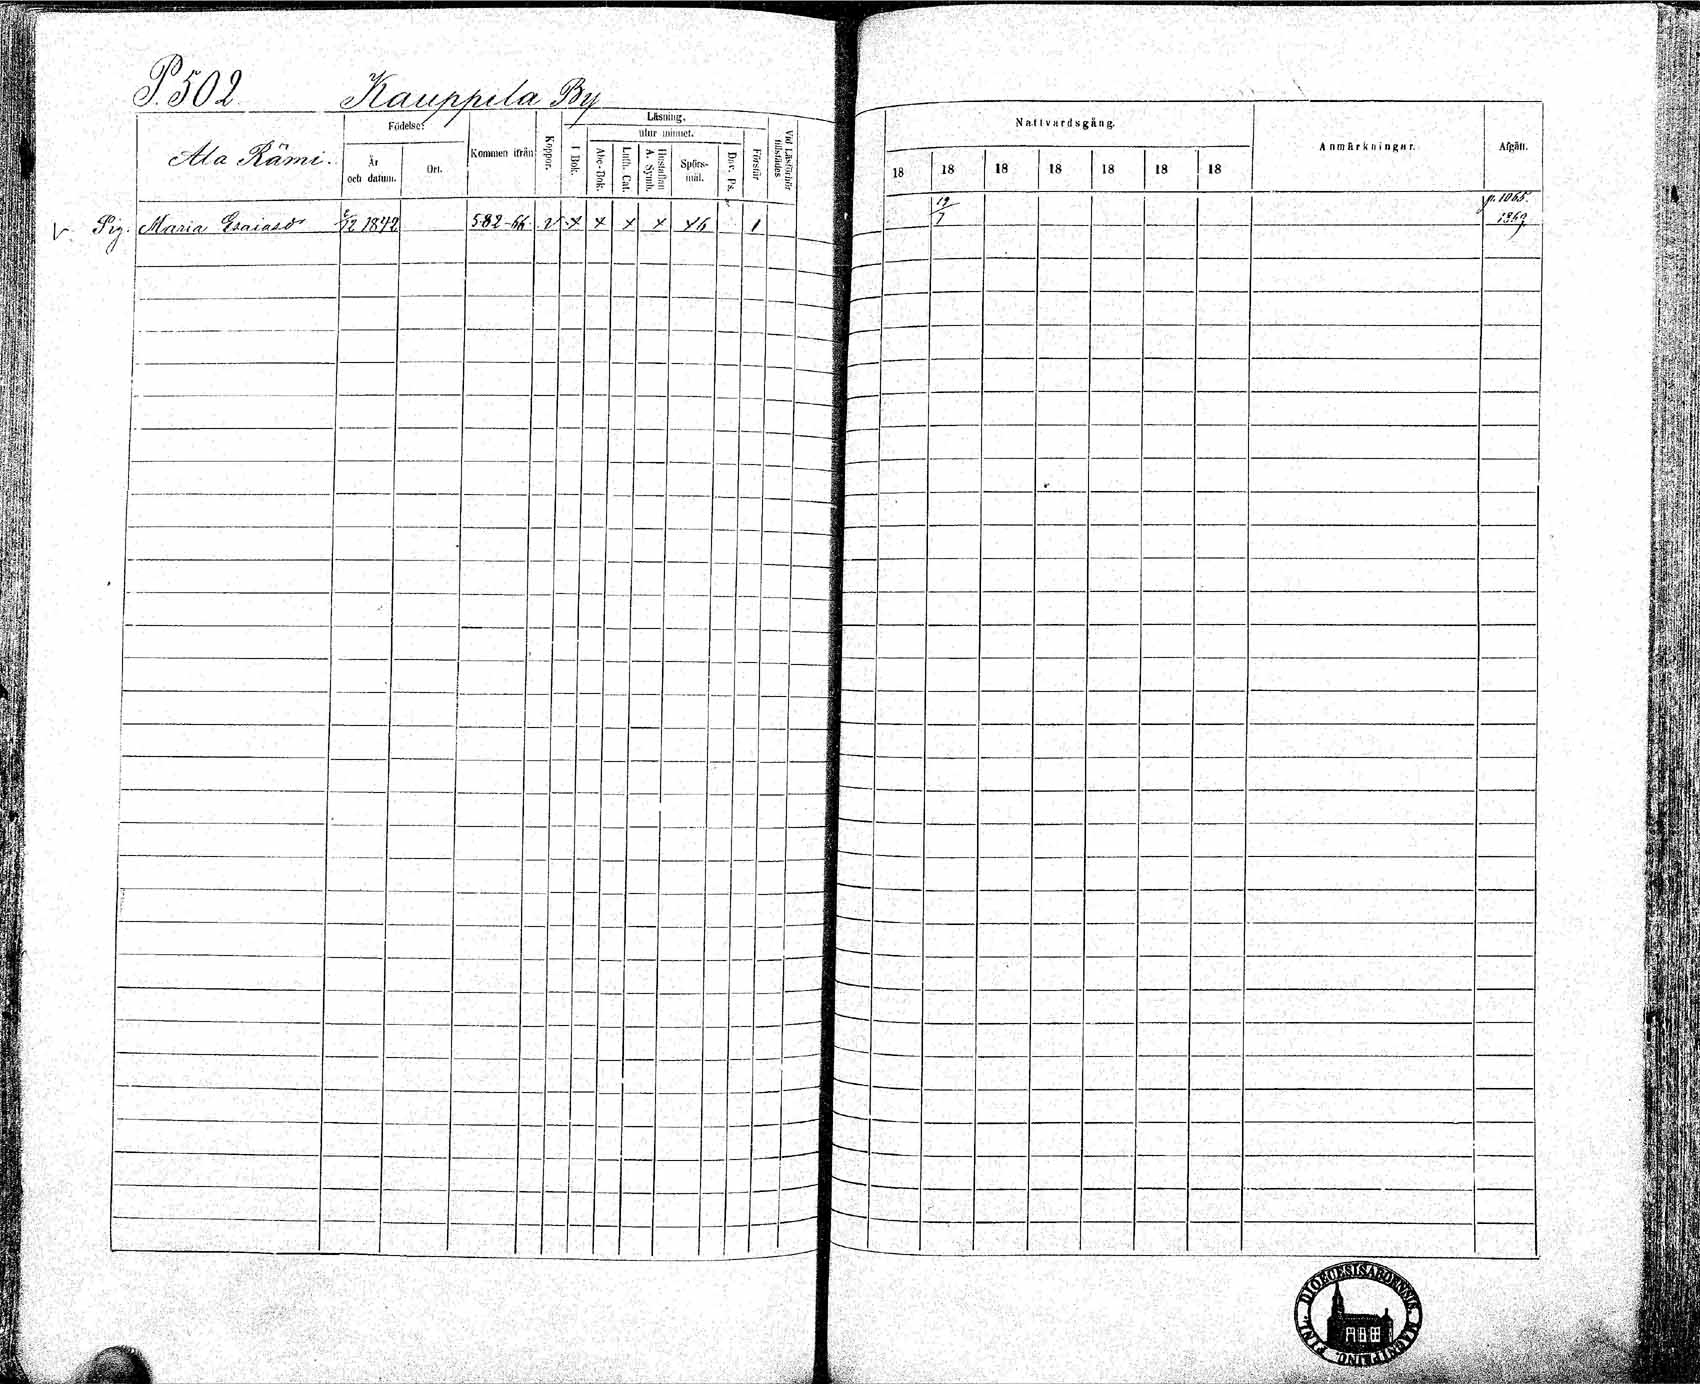 P. 502. Kauppila By
Ala Rämi.
Födelse:
År och datum.
Ort.
Kommen ifrån
Koppor.
Läsning.
I Bok.
utur minnet.
Abc-Bok.
Luth. Cat.
Hustaflan A. Symb.
Spörs-mål.
Dav. Ps.
Förstår
Vid Läsförhör tillstädes
Nattvardsgång.
18 18 18 18 18 18 18
Anmärkningar.
Afgått.
v Pig. Maria Esaiasdr /12 1842 582-66 v x x x x x6 1
12/7
p. 1065.
1869.
DIOECESIS ABOENSIS MAGNI PRINC. FINL.